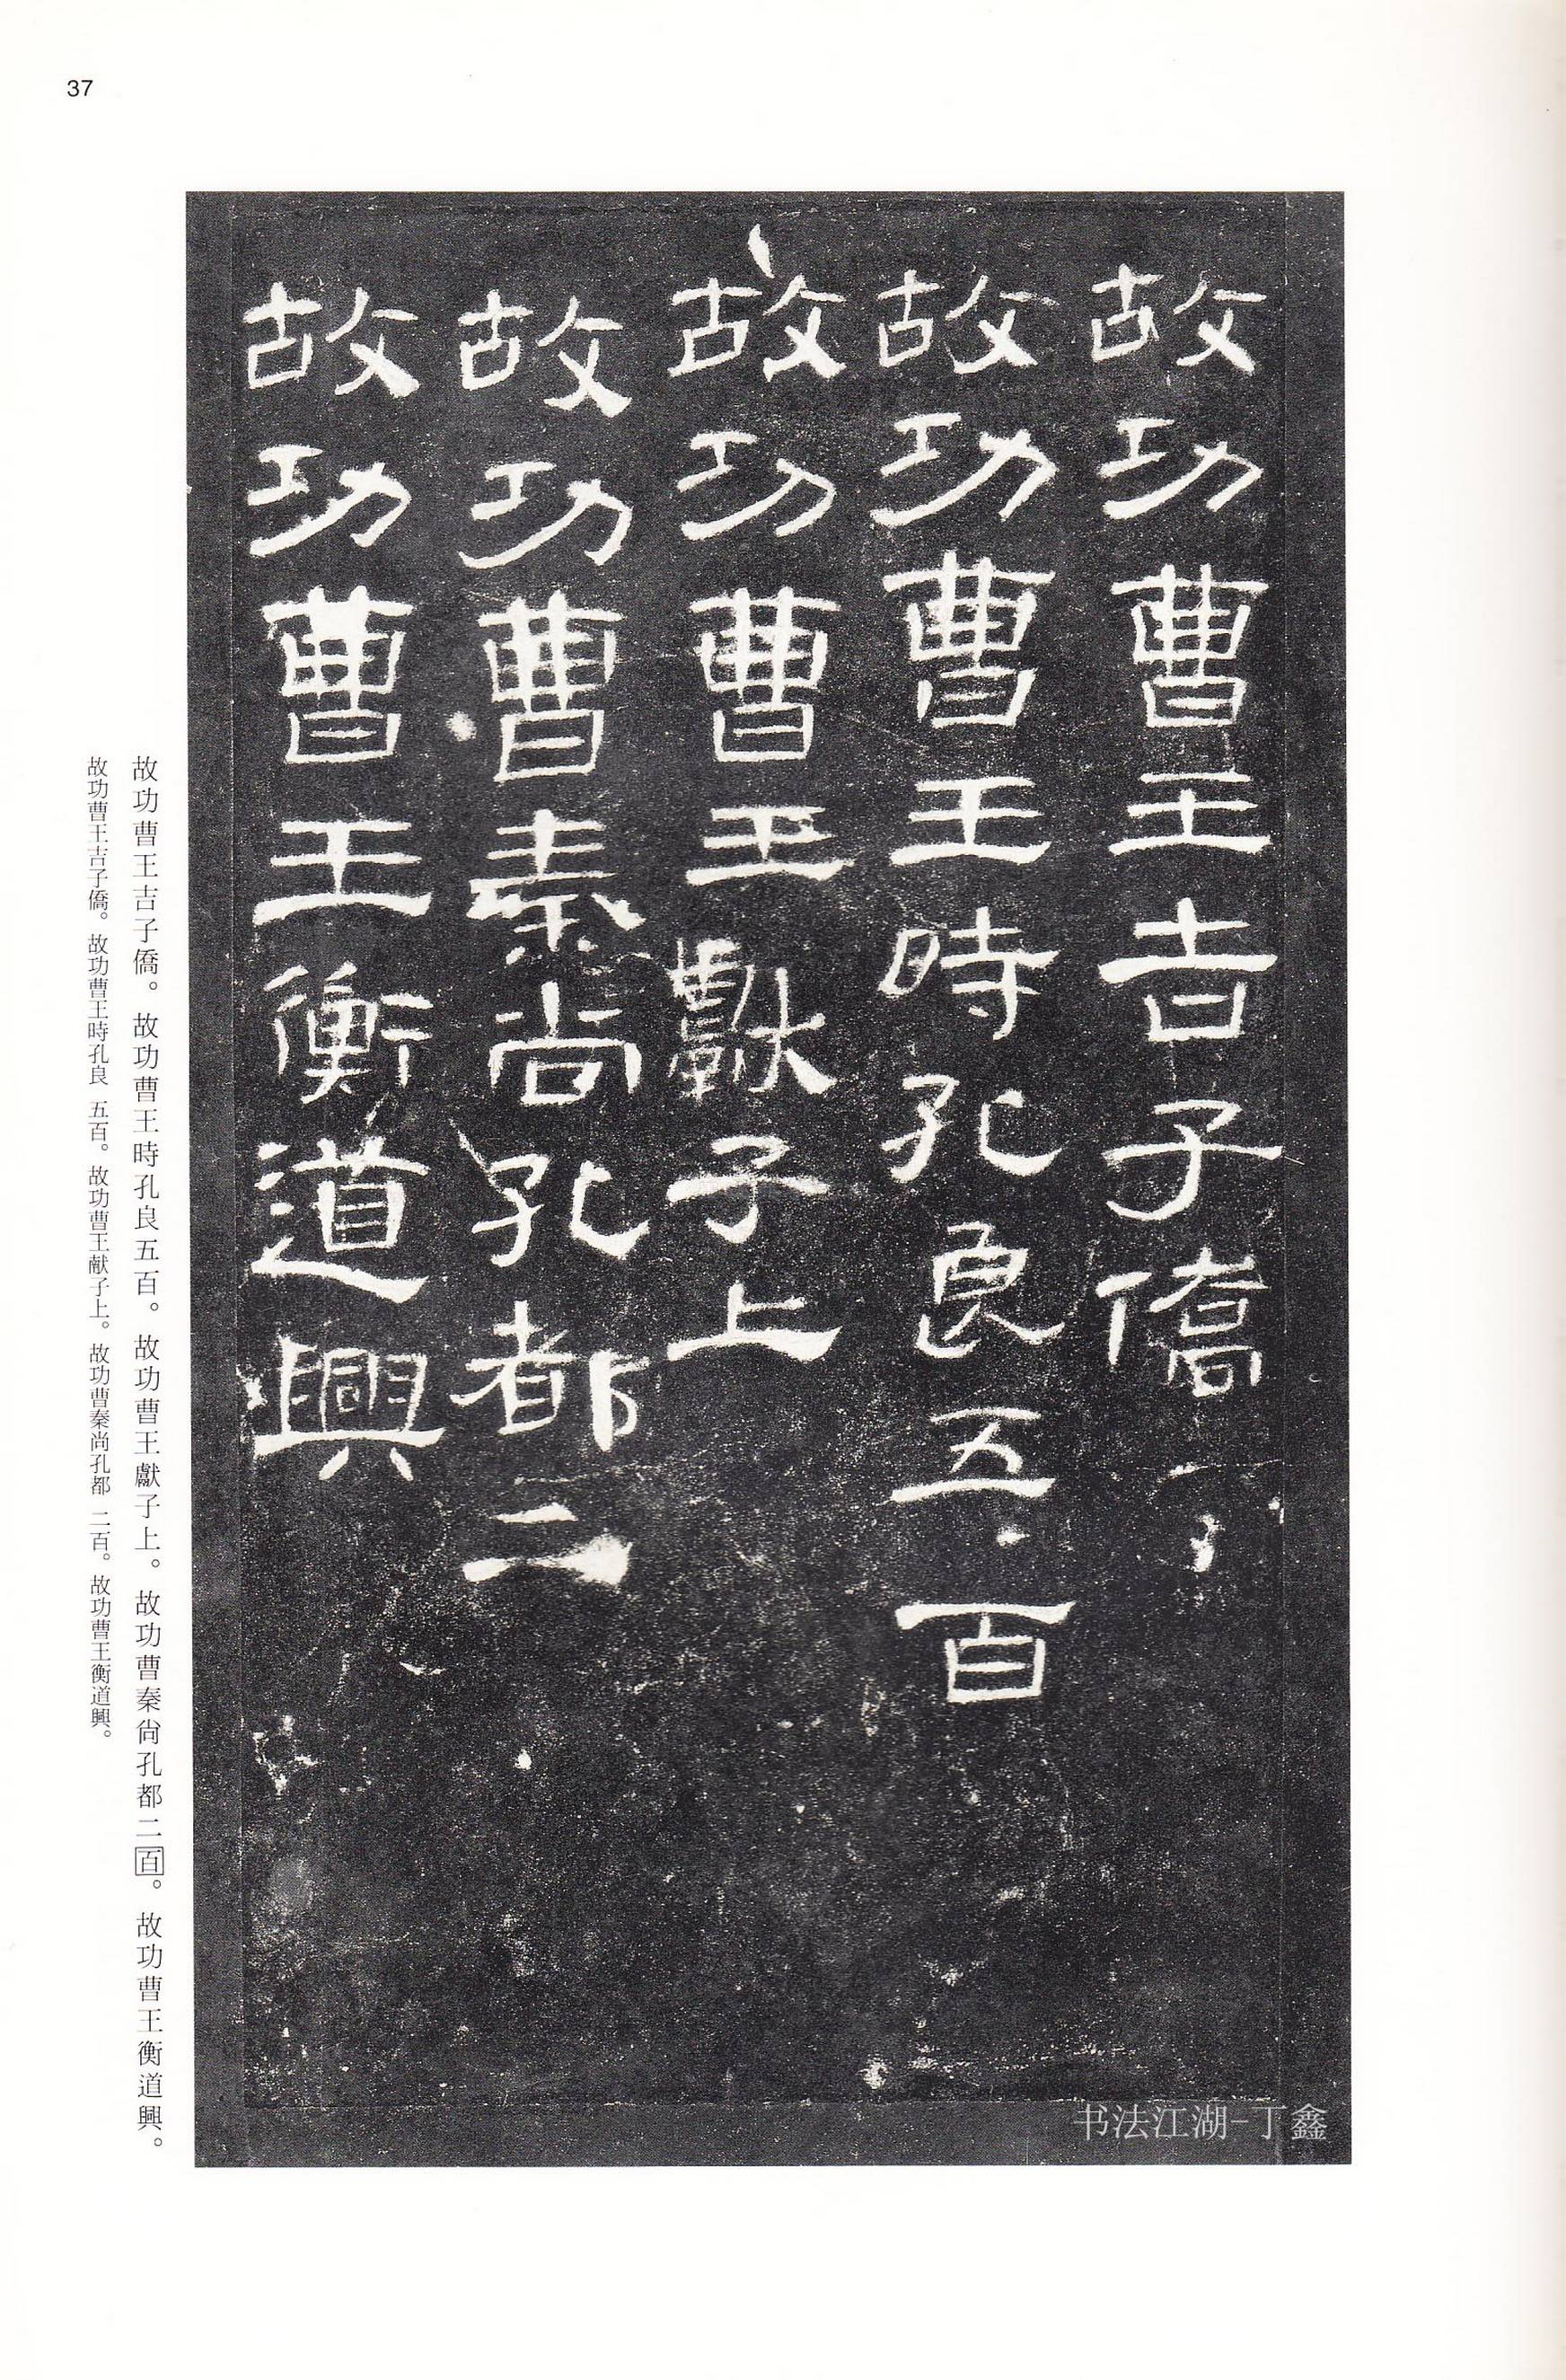 37
故功曹王吉子僑
故功曹王時孔良五百
故功曹王獻子上
故功曹秦尚孔都二
故功曹王衡道興
故功曹王吉子僑。故功曹王時孔良五百。故功曹王獻子上。故功曹秦尙孔都二百。故功曹王衡道興。
故功曹王吉子僑。故功曹王時孔良 五百。故功曹王献子上。故功曹秦尚孔都 二百。故功曹王衡道興。
书法江湖-丁鑫